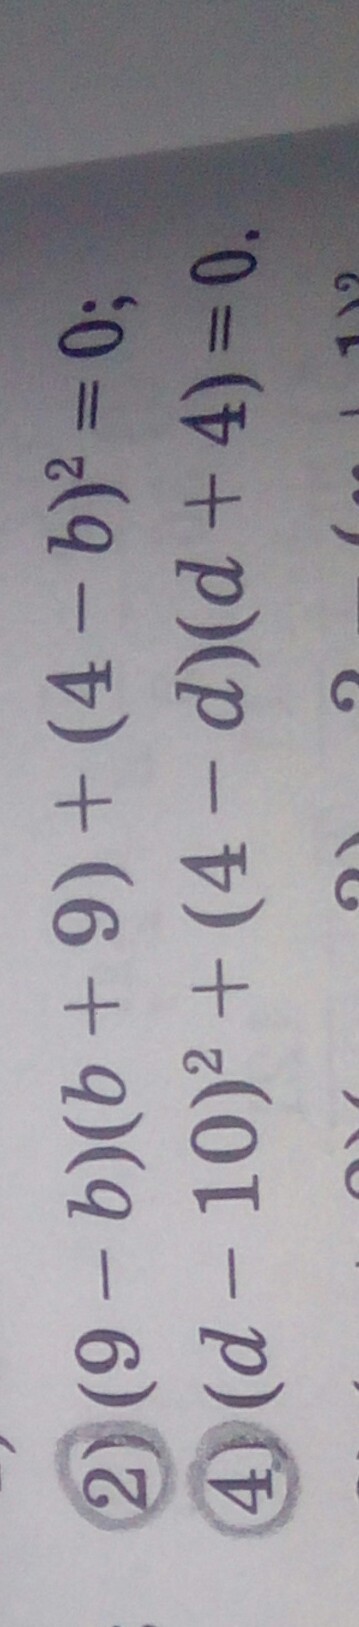 2) (9 − b)(b + 9) + (4 − b)² = 0;
4) (d − 10)² + (4 − d)(d + 4) = 0.